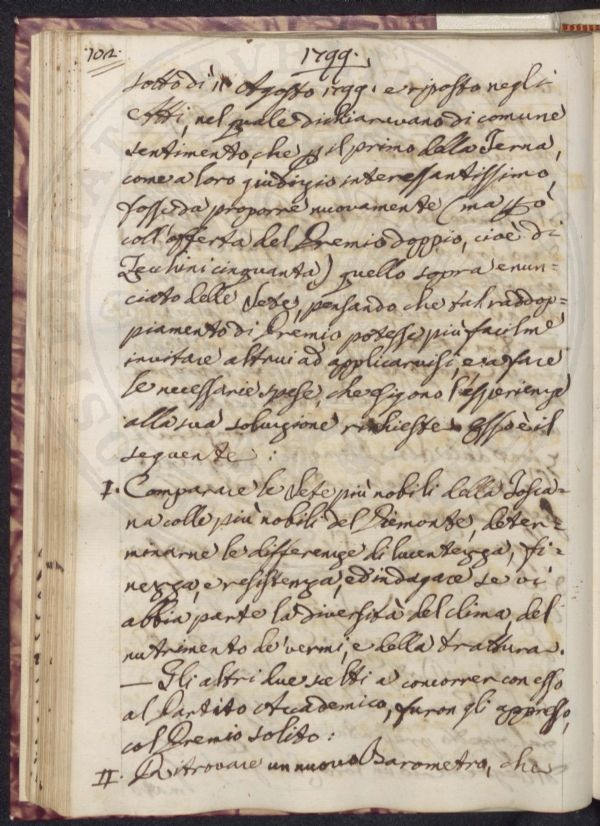 102.
1799.
sotto dì 11 Agosto 1799. e riposto negli
Atti, nel quale dichiaravano di comune
sentimento, che p il primo della Terna,
come a loro giudizio interessantissimo,
fosse da proporre nuovamente (ma però
coll'offerta del Premio doppio, cioè di
Zecchini cinquanta) quello sopra enun=
ciato delle Sete, pensando che tal raddop=
piamento di Premio potesse più facilme
invitare altrui ad applicarvisi, e a fare
le necessarie spese, che esigono l'esperienze
alla sua soluzione richieste. Esso è il
seguente:
I. Comparare le Sete più nobili della Tosca=
na colle più nobili del Piemonte, deter=
minarne le differenze di lucentezza, fi=
nezza, e resistenza, ed indagare se vi
abbia parte la diversità del clima, del
nutrimento de' vermi, e della trattura.
— Gli altri due scelti a concorrer con esso
al Partito Accademico, furon gli appresso,
col Premio solito:
II. Ritrovare un nuovo Barometro, che